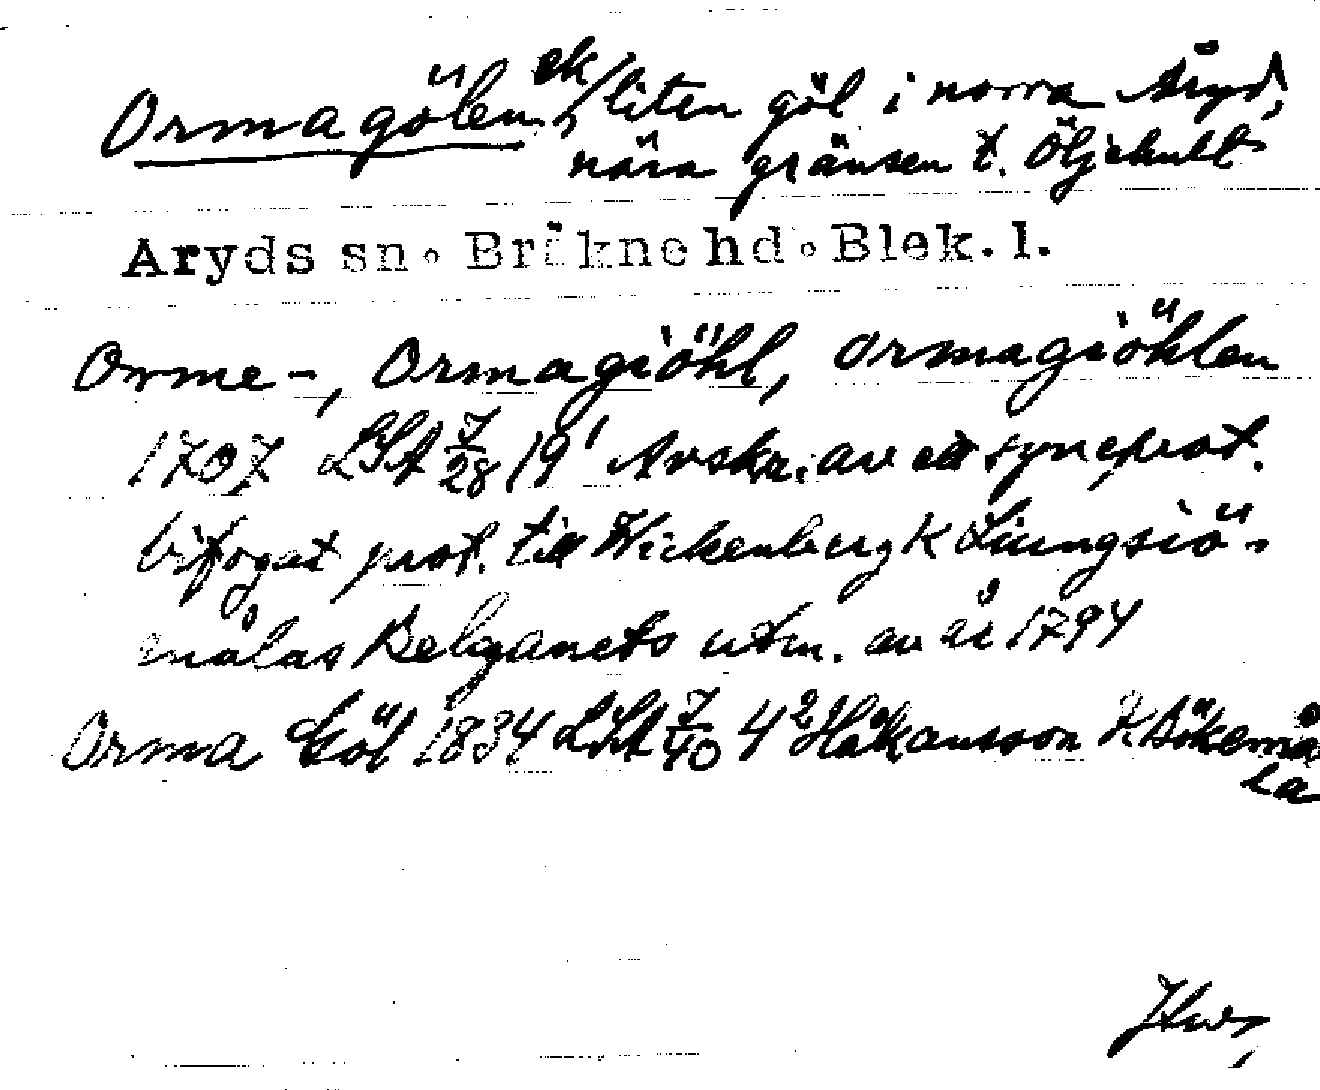 Ormagölen ek/ liten göl i norra Åryd,
nära gränsen t. Öljehult
Aryds sn. Bräkne hd. Blek. l.
Orme-, Ormagiöhl, Ormagiöhlen
1707 LSA 7/28 19¹ Avskr. av ett syneprot.
bifogat prot. till Wickenberg K Liungsiö-
målas Belganets utm. av år 1794
Orma Göl 1834 LSA 7/40 4² Håkansson K Bökemå
la